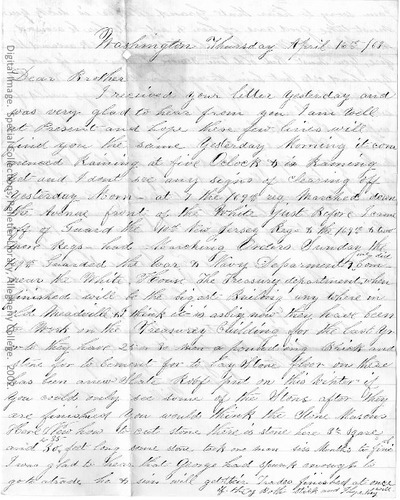 Washington Thursday April 10th /63
Dear Brother
I received your letter Yesterday and
was very glad to hear from you I am well
at Present and hope these few lines will
find you the same Yesterday Morning it com
menced Raining at five Oclock & is Raining
yet and I dont see any signs of clearing off
Yesterday Morn at 9 the 169th reg Marched down
the Avenue front of the White Just Before I came
off of Guard the New Jersey Regt & the 169th &
more Regts had Marching Orders Sunday the
Guarded the War & Navy Department
near the White House The Treasury department when
finished will be the bigest Building any where in
old Meadville I think it is as big now they have been
to Work on the Treasury Building for the last
they have men a pounding Brick and
stone for to Cement for to Lay Stone floor on there
has been a new Slate Roof put on this winter if
You could only see some of the Stone after they
are finished You would think the Stone Masons
know how to cut stone there is stone here 3 ft square
and 35 feet long some stone took one man six Months to fine
I was glad to hear that George had spunk enough to
go to trade he & will get their Trades finished at once
if they Both Stick and
Digital Image, Special Collections, Pelletier Library, Allegheny College, 2002